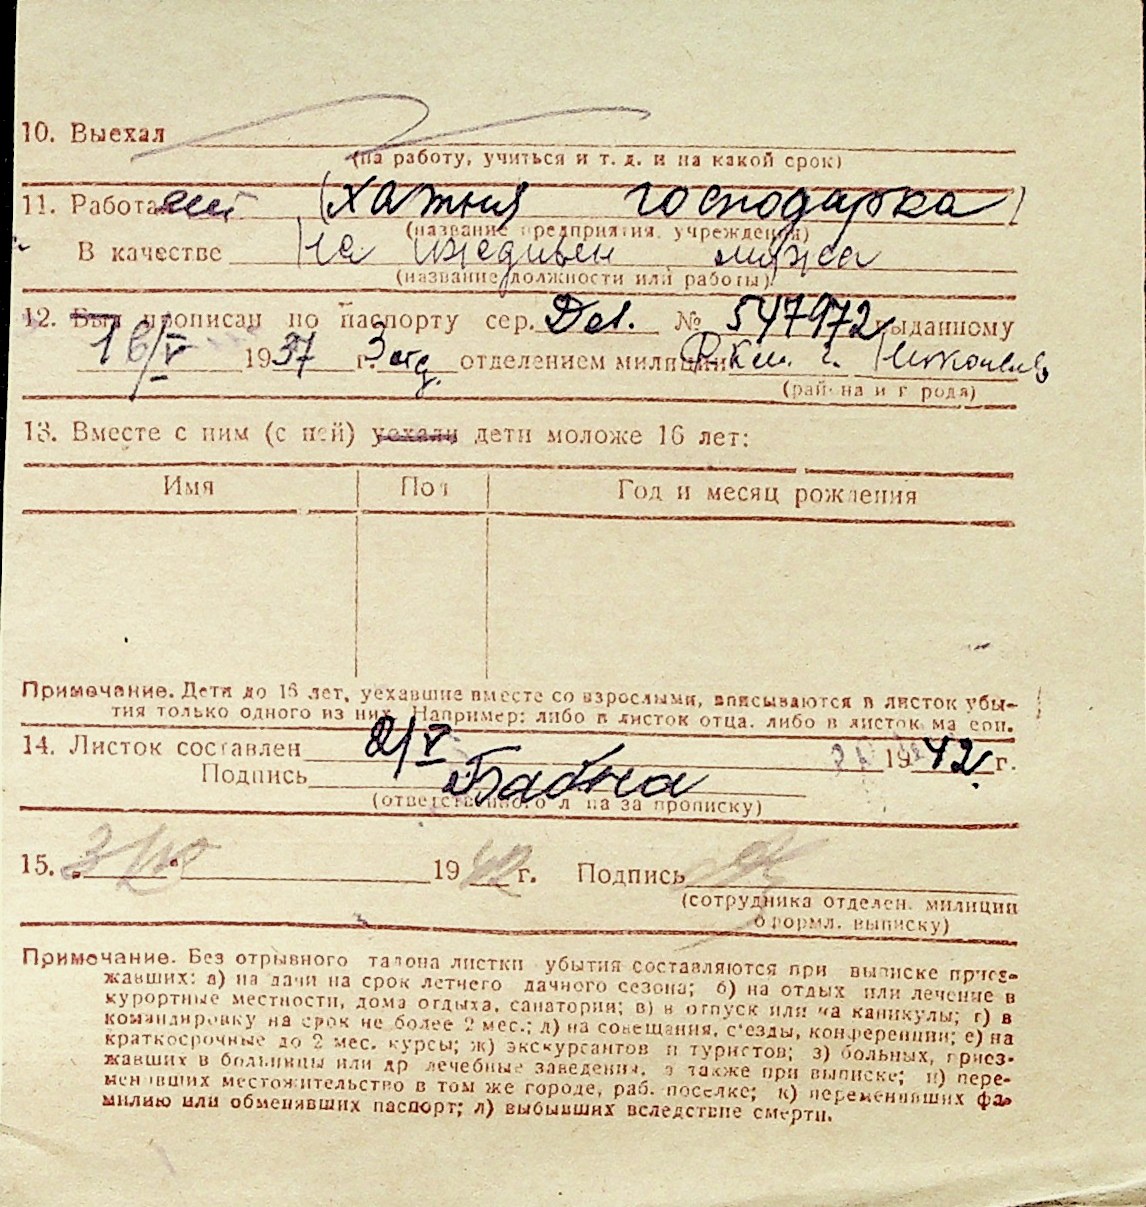 10. Выехал
(на работу, учиться и т. д. и на какой срок)
11. Работает (хатня господарка)
(название предприятия, учреждения)
В качестве На иждивен мужа
(название должности или работы)
12. Был прописан по паспорту сер. № 547972 выданному
16/V 1937 г. 3 отд. отделением милиции г.
(района и города)
13. Вместе с ним (с ней) уехали дети моложе 16 лет:
Имя Пол Год и месяц рождения
Примечание. Дети до 16 лет, уехавшие вместе со взрослыми, вписываются в листок убы-
тия только одного из них. Например: либо в листок отца, либо в листок матери.
14. Листок составлен 2/V 1942 г.
Подпись
(ответственного лица за прописку)
15. 1942 г. Подпись
(сотрудника отделен. милиции
оформл. выписку)
Примечание. Без отрывного талона листки убытия составляются при выписке приез-
жавших: а) на дачи на срок летнего дачного сезона; б) на отдых или лечение в
курортные местности, дома отдыха, санатории; в) в отпуск или на каникулы; г) в
командировку на срок не более 2 мес.; д) на совещания, с'езды, конференции; е) на
краткосрочные до 2 мес. курсы; ж) экскурсантов и туристов; з) больных, приез-
жавших в больницы или др лечебные заведения, а также при выписке; и) пере-
менивших местожительство в том же городе, раб. поселке; к) переменивших фа-
милию или обменявших паспорт; л) выбывших вследствие смерти.